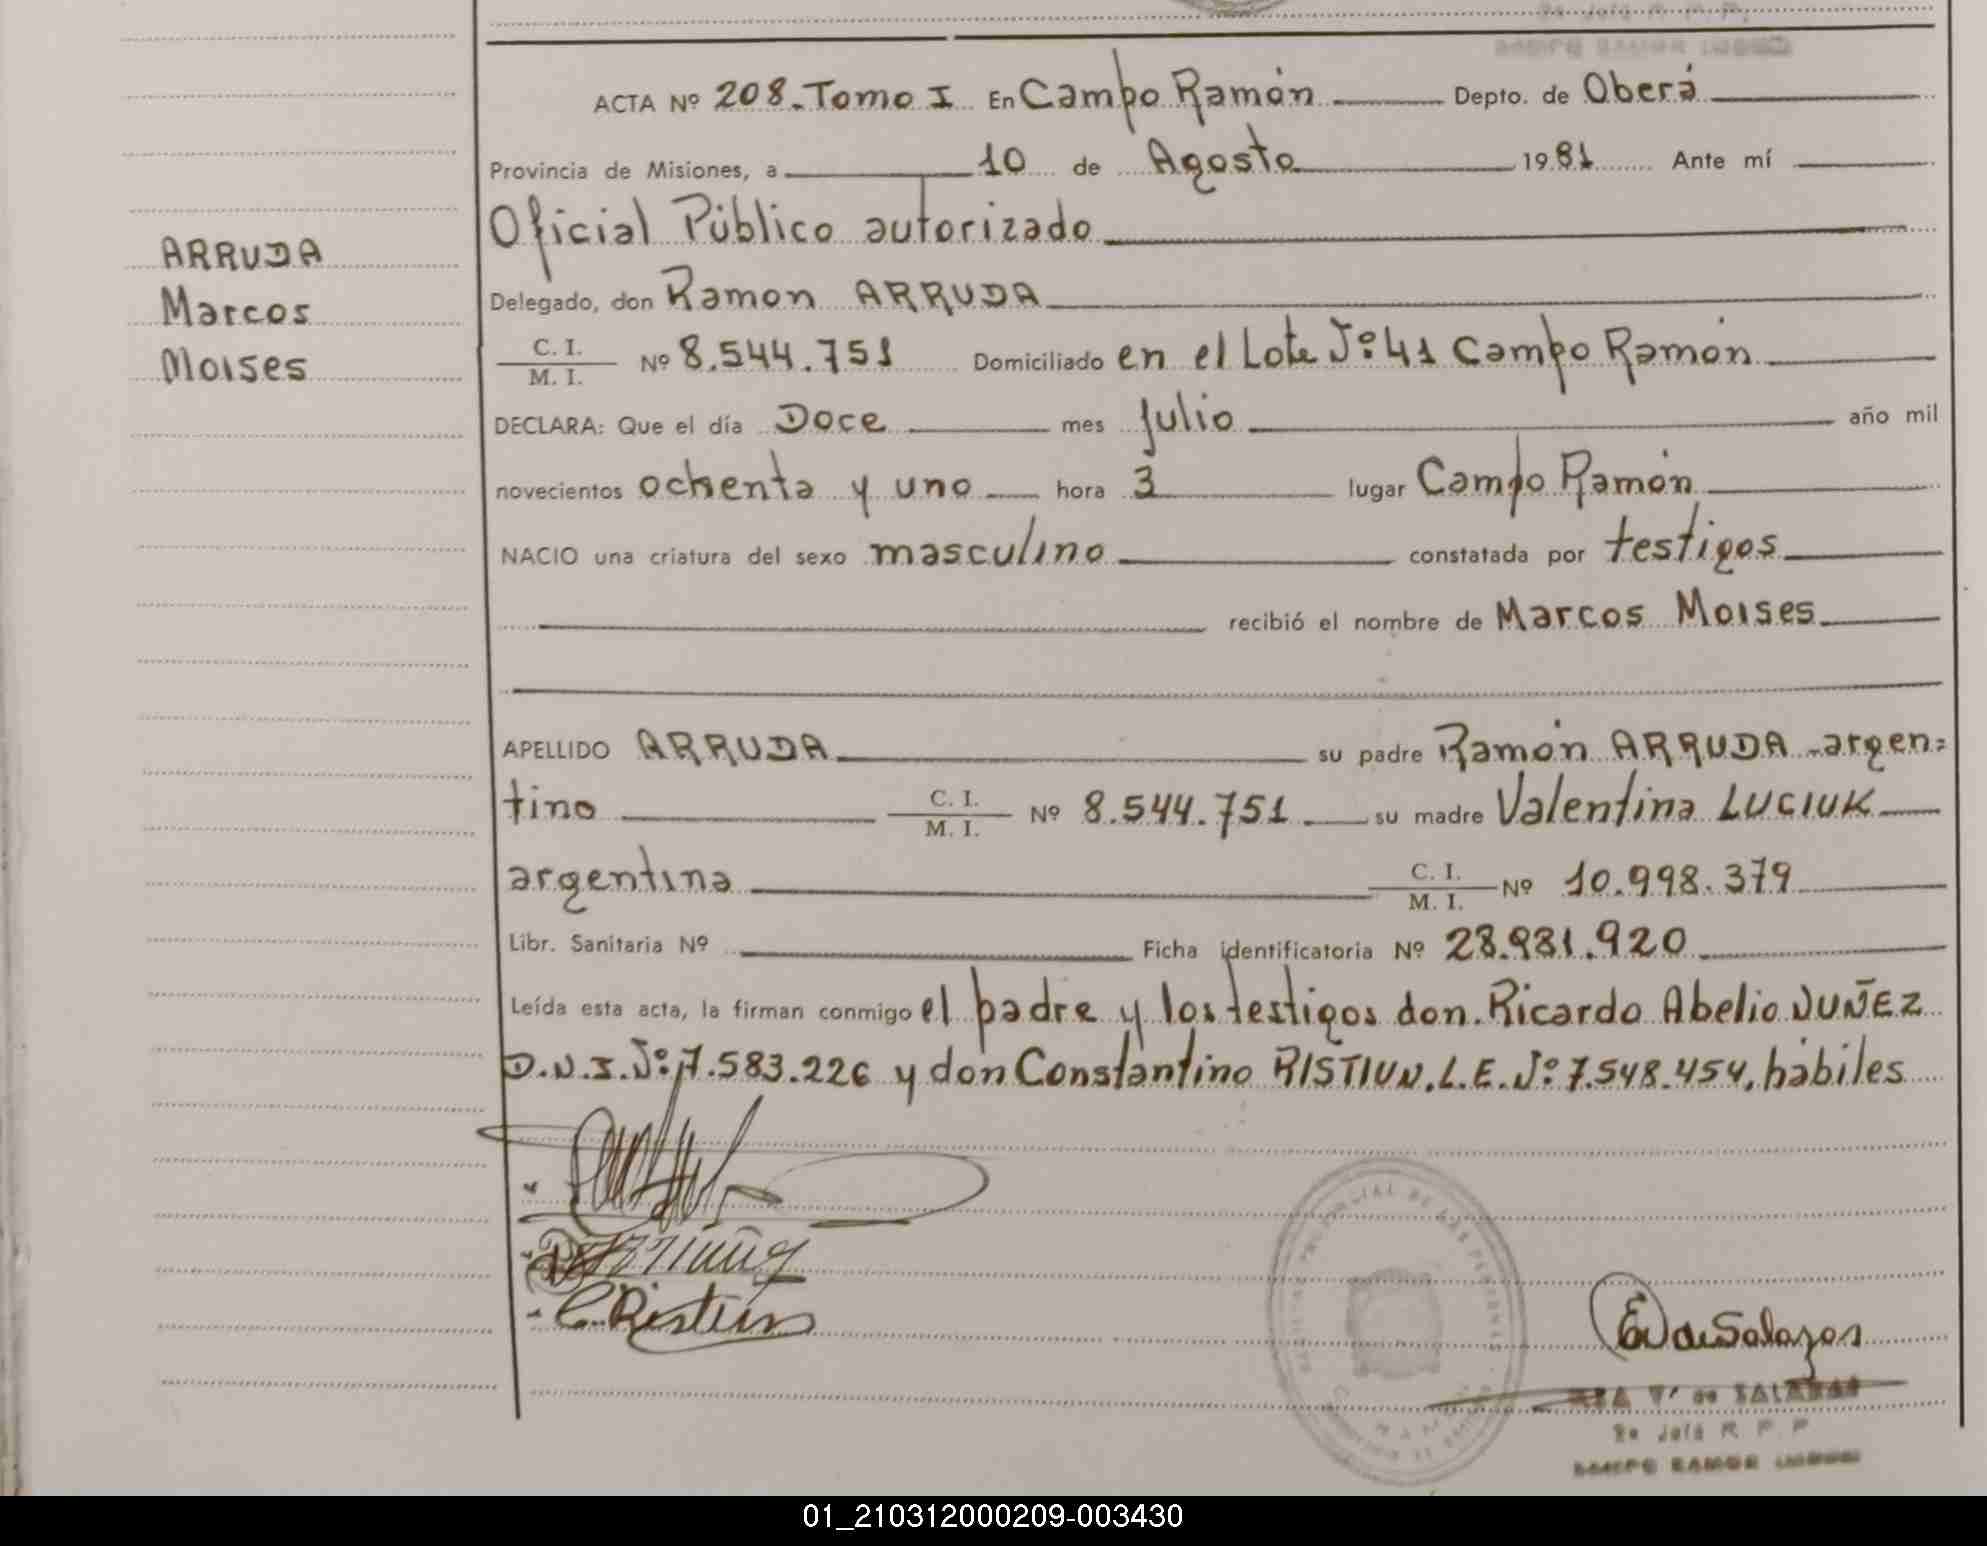 ACTA Nº 208. Tomo I En Campo Ramón Depto. de Oberá
Provincia de Misiones, a 10 de Agosto 1981 Ante mí
Oficial Público autorizado
ARRUDA
Marcos
Moises
Delegado, don Ramon ARRUDA
C. I.
M. I.
Nº 8.544.751 Domiciliado en el Lote Nº 41 Campo Ramón
DECLARA: Que el día Doce mes Julio año mil
novecientos ochenta y uno hora 3 lugar Campo Ramón
NACIO una criatura del sexo masculino constatada por testigos
recibió el nombre de Marcos Moises
APELLIDO ARRUDA su padre Ramón ARRUDA - argen=
tino C. I. M. I. Nº 8.544.751 su madre Valentina LUCIUK
argentina C. I. M. I. Nº 10.998.379
Libr. Sanitaria Nº Ficha identificatoria Nº 28.931.920
Leída esta acta, la firman conmigo el padre y los testigos don. Ricardo Abelio NUÑEZ
D.N.I. Nº 7.583.226 y don Constantino RISTIUN. L.E. Nº 7.548.454, hábiles
C. Ristiun
de Salazar
Vª de SALAZAR
R P P
CAMPO RAMON
01_210312000209-003430